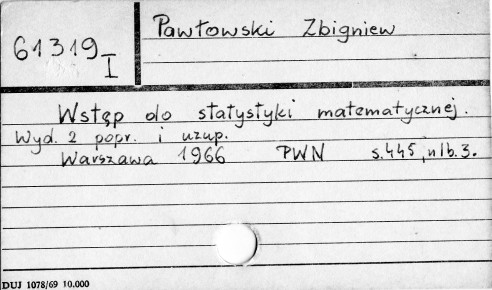 Pawłowski Zbigniew
61319
I
Wstęp do statystyki matematycznej.
Wyd. 2 popr. i uzup.
Warszawa 1966 PWN s.445, nlb.3.
DUJ 1078/69 10.000